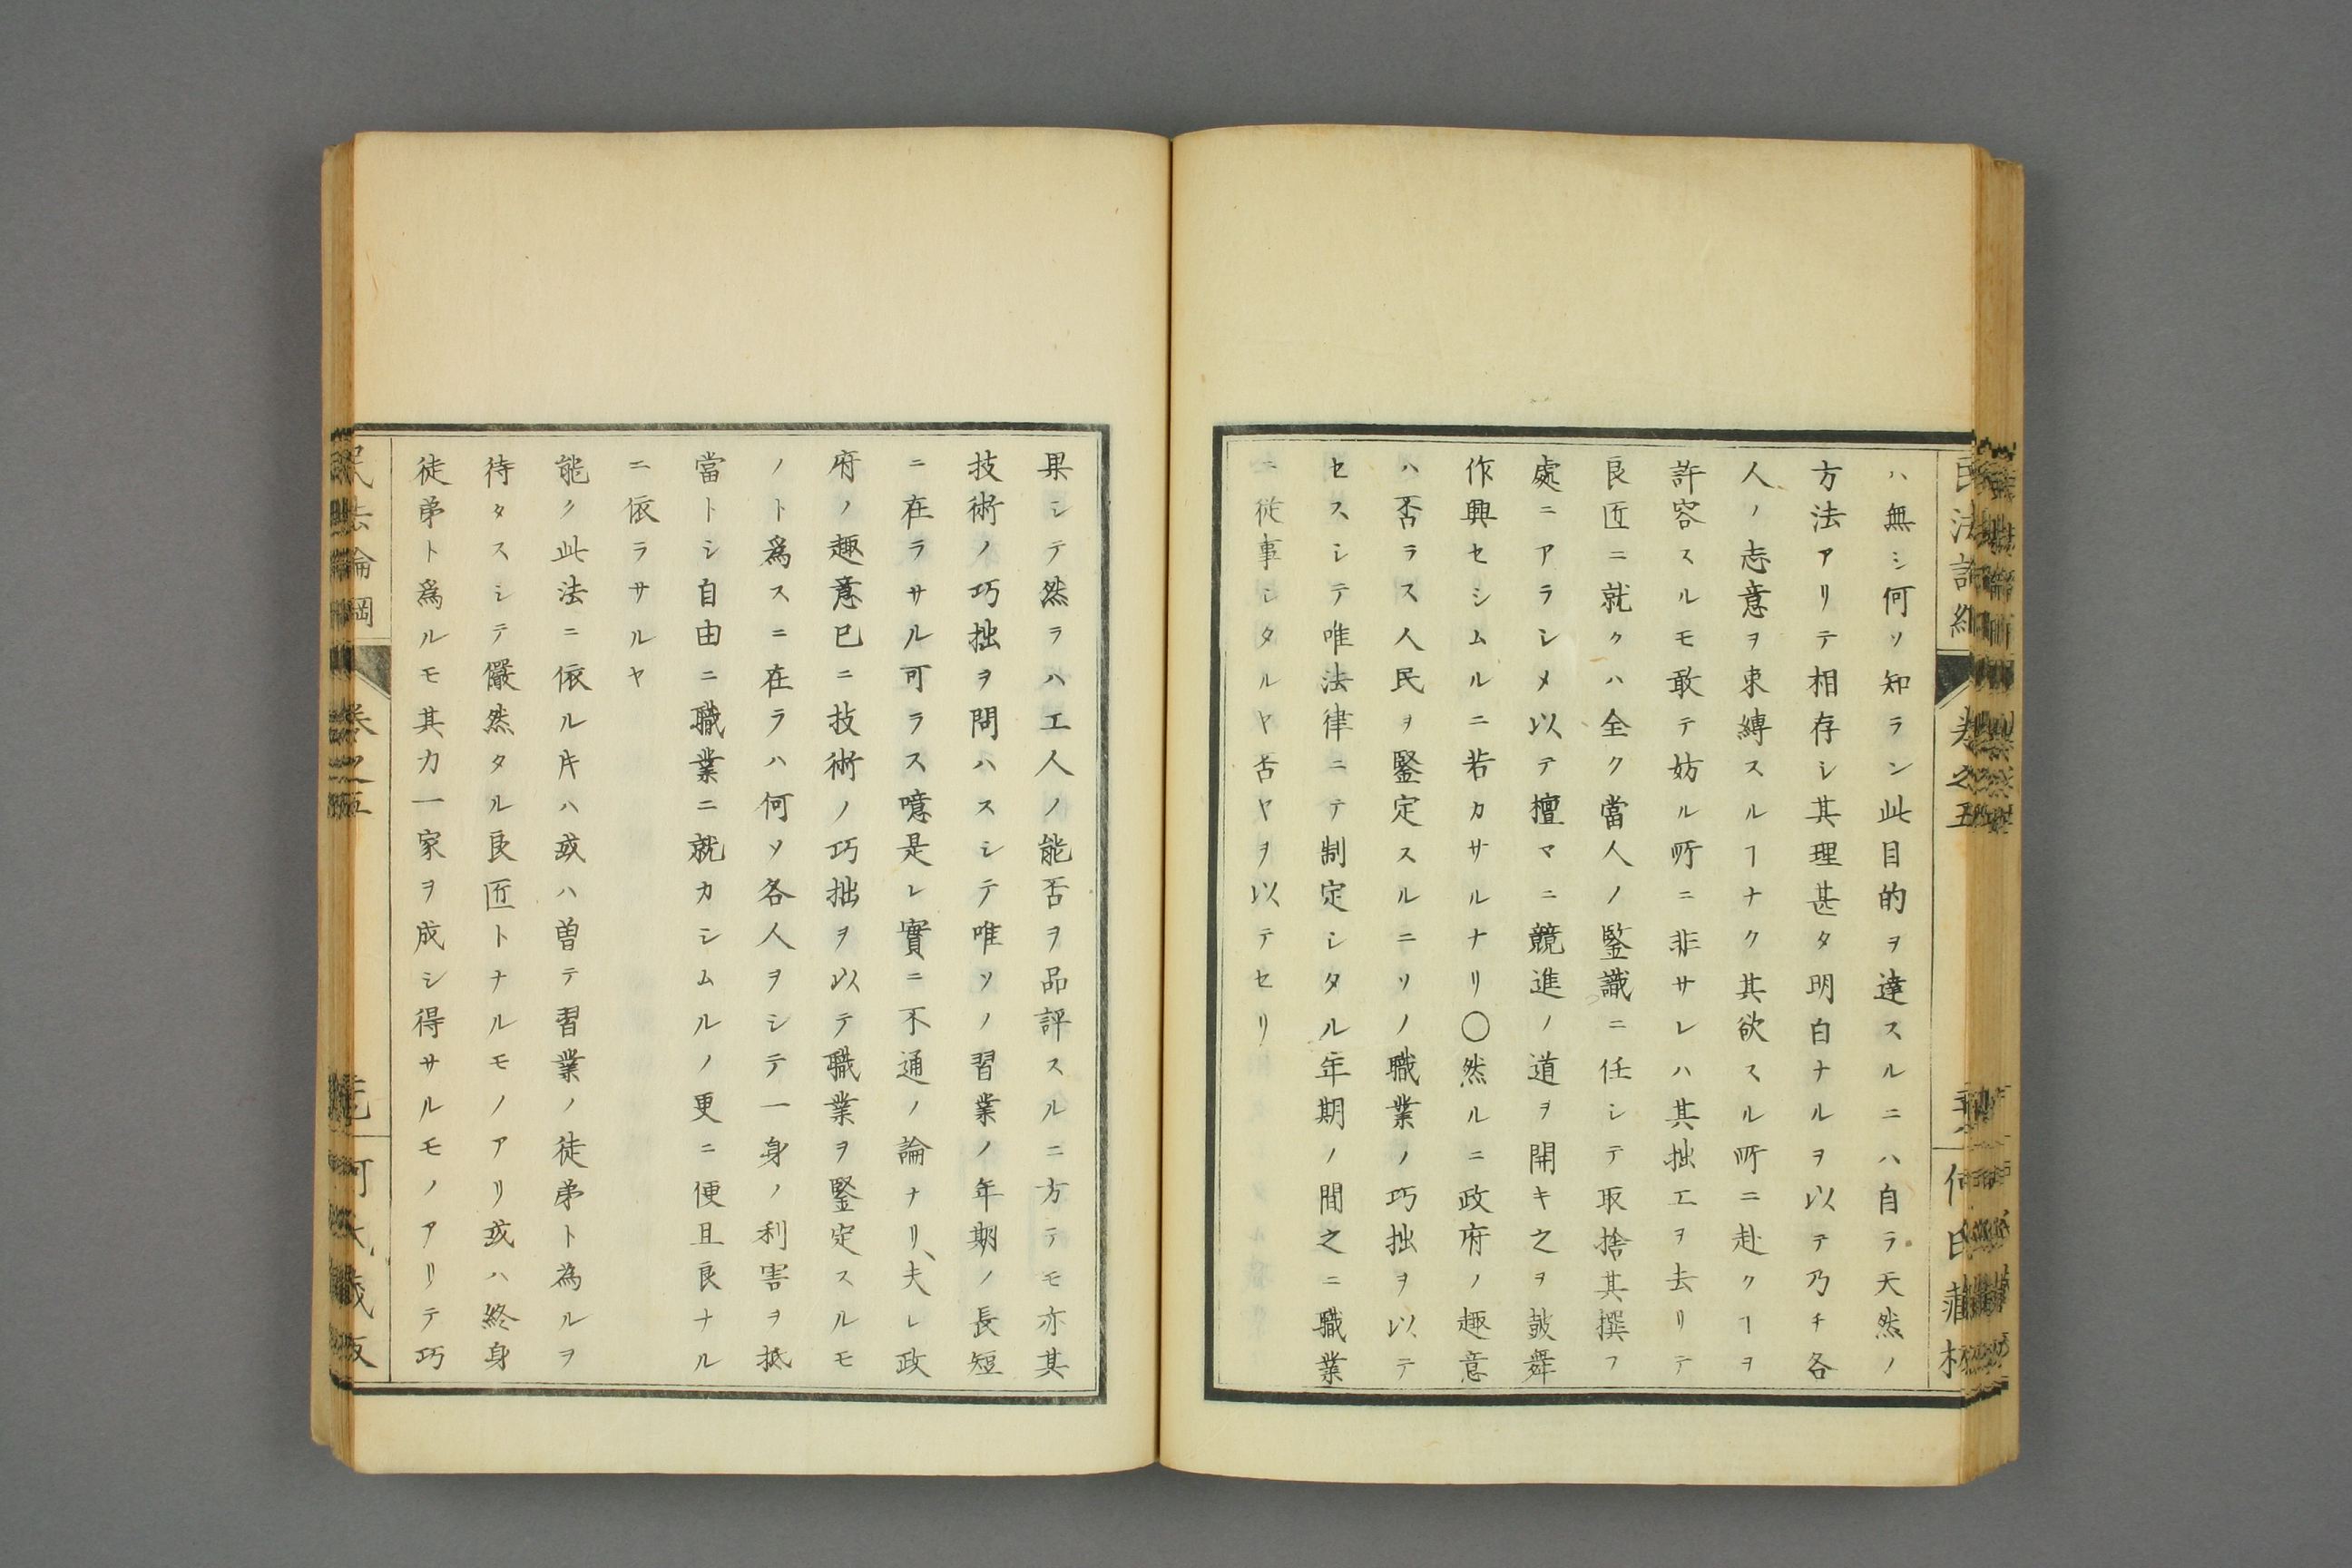 ハ無シ何ソ知ラン此目的ヲ達スルニハ自ラ天然ノ
方法アリテ相存シ其理甚タ明白ナルヲ以テ乃チ各
人ノ志意ヲ束縛スルヿナク其欲スル所ニ赴クヿヲ
許容スルモ敢テ妨ル所ニ非サレハ其拙工ヲ去リテ
良匠ニ就クハ全ク當人ノ鑒識ニ任シテ取捨其撰フ
處ニアラシメ以テ擅マニ競進ノ道ヲ開キ之ヲ鼓舞
作興セシムルニ若カサルナリ〇然ルニ政府ノ趣意
ハ否ラス人民ヲ鑒定スルニソノ職業ノ巧拙ヲ以テ
セスシテ唯法律ニテ制定シタル年期ノ間之ニ職業
ニ從事シタルヤ否ヤヲ以テセリ
果シテ然ラハ工人ノ能否ヲ品評スルニ方テモ亦其
技術ノ巧拙ヲ問ハスシテ唯ソノ習業ノ年期ノ長短
ニ在ラサル可ラス噫是レ實ニ不通ノ論ナリ、夫レ政
府ノ趣意已ニ技術ノ巧拙ヲ以テ職業ヲ鑒定スルモ
ノト爲スニ在ラハ何ソ各人ヲシテ一身ノ利害ヲ抵
當トシ自由ニ職業ニ就カシムルノ更ニ便且良ナル
ニ依ラサルヤ
能ク此法ニ依ル𪜈ハ或ハ曽テ習業ノ徒弟ト為ルヲ
待タスシテ儼然タル良匠トナルモノアリ或ハ終身
徒弟ト爲ルモ其力一家ヲ成シ得サルモノアリテ巧
民法論綱
巻之五
何氏藏版